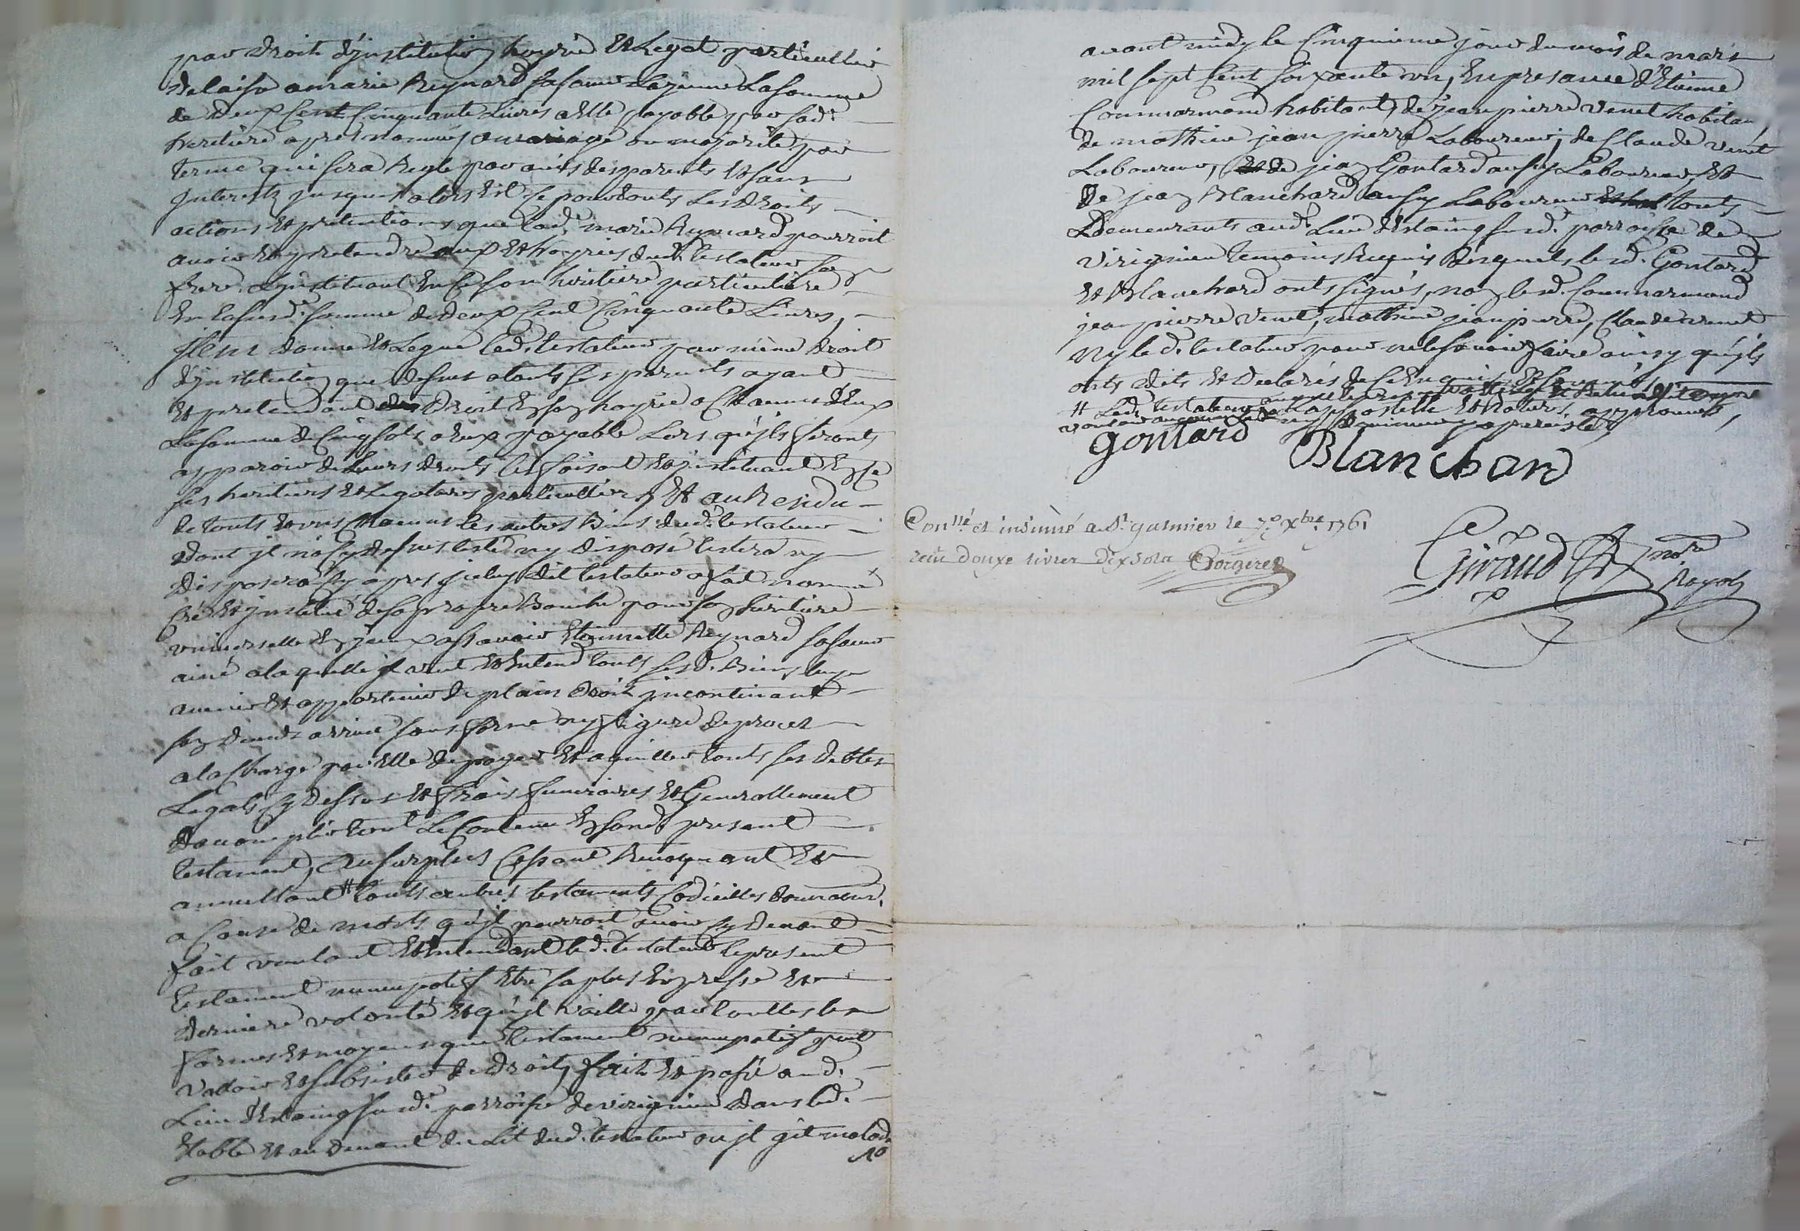 par droit d'jnstitution hoyrie et Legat particullier
delaisse a marie Reynard sa soeur La jeune La somme
de deux Cent Cinquante Livres a elle payable par sad.
heritiere apres nommée au mariage ou majorité par
terme qui sera Reglé par avis des parents et sans
jnterests jusqu'alors et ce pour touts Les droits
actions et pretentions que lad. marie Reynard pourroit
avoir et pretendre aux et hoyries dud. testateur son
frere l'jnstituant en ce son heritiere particuliere
en lasusd. somme de deux Cent Cinquante Livres,
jtem donne et Legue Led. testateur par même droit
d'jnstitution que dessus a touts ses parents ayant
et pretendant droit en son hoyrie a Chacun d'eux
La somme de Cinq sols a eux payable Lors qu'ils feronts
apparoir de Leurs droits les faisant et jnstituant en ce
ses heritiers et Legataires particulliers et au Residu
de touts et uns Chacuns les autres Biens dud. testateur
dont jl n'a cy dessus testé ny disposé testera ny
disposera cy apres jceluy dit testateur a fait nommé
créé et jnstitué de sa propre Bouche pour son heritiere
universelle en jceux assavoir Etiennette Reynard sa soeur
ainé a laquelle jl veut et entend touts sesd. Biens luy
avenir et appartenir de plain droit jncontinant
son deceds arrivé sans forme ny figure de procez
a la Charge par elle de payer et aquitter touts ses debtes
Legats cy dessus et frais funeraires et Generallement
d'accomplir tout Le Contenu en son present
testament, au surplus Cassant Revoquant et
annullant # touts autres testaments Codicilles donnations
a Cause de morts qu'jl pourroit avoir cy devant
fait voulant et entendant led. testateur le present
testament nuncupatif estre sa plus expresse et
derniere volonté et qu'jl vaille par touttes les
formes et moyens que testament nuncupatif peut
valloir et subsister de droit, fait et passé aud.
Lieu d'Estaing susd. parroisse de virignieu dans led.
Etable et au devant du Lit dud. testateur ou jl git malade
avant midy le Cinquieme jour du mois de mars
mil sept Cent soixante un, en presance d'Etienne
Commarmond habitant, de jean pierre venet habitant,
de mathieu jean pierre Laboureur, de Claude venet
Laboureur, de jean Gontard aussy Laboureur et
de jean Blanchard aussy Laboureur touts
Demeurants aud. Lieu d'Estaing susd. parroisse de
virignieu temoins Requis desquels lesd. Gontard
et Blanchard onts signés, non lesd. Commarmond
jean pierre venet, mathieu jean pierre, Claude venet
ny led. testateur pour ne sçavoir faire ainsy qu'ils
onts dits et declarés de ce enquis
# Led. testateur
gontard Blanchard
Conllé et insinué a St. galmier le 7e Xbre 1761
reçu douze livres dix sols
Giraud
nore
Royal